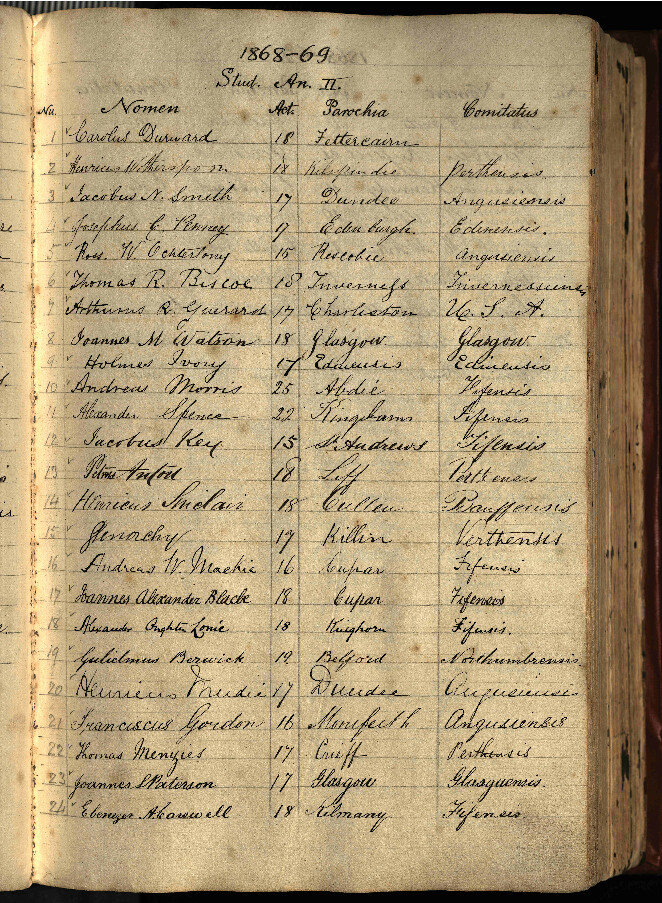 1868-69
Stud. An. II.
Nu. Nomen Aet. Parochia Comitatus
1 Carolus Durward 18 Fettercairn
2 Henricus Witherspoon 18 Kilspindie Perthensis
3 Jacobus N. Smith 17 Dundee Angusiensis
4 Josephus C. Penney 17 Edinburgh Edinensis.
5 W. Ochterlony 15 Rescobie Angusiensis
6 Thomas R. Biscoe 18 Inverness
7 Arthurus R. Guerard 17 Charleston U. S. A.
8 Joannes M Watson 18 Glasgow Glasgow
9 Holmes Ivory 17 Edinensis Edinensis
10 Andreas Morris 25 Abdie Fifensis
11 Alexander Spence 22 Kingbarns Fifensis
12 Jacobus Key 15 St Andrews Fifensis
13 Petrus Anton 18 Liff Perthensis
14 Henricus Sinclair 18 Cullen
15 Glenorchy 17 Killin Perthensis
16 Andreas W. Mackie 16 Cupar Fifensis
17 Joannes Alexander Black 18 Cupar Fifensis
18 Alexander Lonie 18 Kinghorn Fifensis.
19 Gulielmus Berwick 19 Belford Northumbrensis
20 Henricus 17 Dundee Angusiensis
21 Franciscus Gordon 16 Monifeith Angusiensis
22 Thomas Menzies 17 Crieff Perthensis
23 Joannes Paterson 17 Glasgow Glasguensis.
24 Ebenezer A. Carswell 18 Kilmany Fifensis